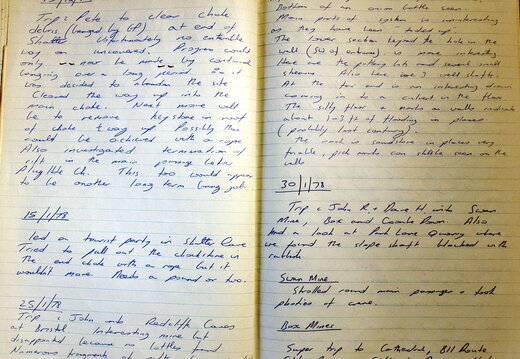 Trip c Pete to clear choke
debris (banged by GP) at end of
Shatter. Unfortunately no enterable
way on uncovered. Progress could
only now be made by continual
banging over a long period so it
was decided to abandon the site.
Cleared the way up into the
main choke. Next move will
be to remove keystone in roof
of choke & way up. Possibly this
could be achieved with a rope
Also investigated termination of
rift in the main passage below
Plughole Ch. This too would appear
to be another long term bang job
15/1/78
led a tourist party in Shatter Cave
Tried to pull out the chockstone in
the end choke with a rope but it
wouldn't move. Needs a pound or two.
25/1/78
Trip c John into Redcliffe Caves
at Bristol. Interesting mine but
disappointed because no bottles found
Numerous fragments of
Bottom of an onion bottle seen.
Main parts of system is uninteresting
as they have been tidied up.
The lower section beyond the hole in the
wall (SW of entrance) is more interesting
Here are the pottery tips and several small
streams. Also here are 3 well shafts.
At the far end is an interesting drain
coming in to a culvert in the floor
The silty floor & marks on walls indicate
about 1-3 ft of flooding in places
(probably last century).
The rock is sandstone in places very
friable, pick marks can still be seen on the
walls
30/1/78
Trip c John R + Dave H into Swan
Mine, Box and Coombe Down Also
had a look at Park Lane Quarry where
we found the slope shaft blocked with
rubbish
Swan Mine
Strolled round main passages & took
photos of crane.
Box Mines
Super trip to Cathedral, B11 Route